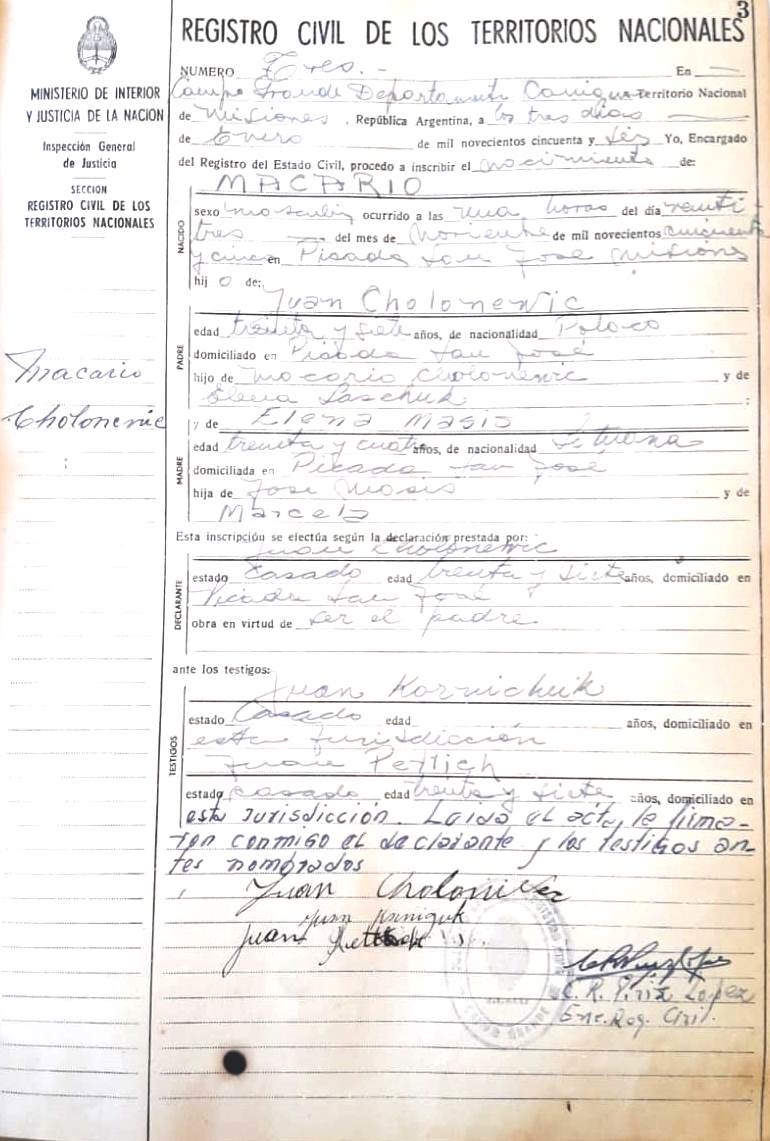 3
REGISTRO CIVIL DE LOS TERRITORIOS NACIONALES
MINISTERIO DE INTERIOR
Y JUSTICIA DE LA NACION
Inspección General
de Justicia
SECCION
REGISTRO CIVIL DE LOS
TERRITORIOS NACIONALES
Macario
Cholonenic
NUMERO Tres.- En
Campo Grande Departamento Territorio Nacional
de Misiones, República Argentina, a los tres días
de Enero de mil novecientos cincuenta y seis Yo, Encargado
del Registro del Estado Civil, procedo a inscribir el nacimiento de:
NACIDO
MACARIO
sexo ocurrido a las una horas del día veinti-
tres del mes de de mil novecientos cincuenta
y cinco en Picada San José Misiones
hijo de:
PADRE
Juan Cholonenic
edad treinta y siete años, de nacionalidad Polaco
domiciliado en Picada San José
hijo de Macario Cholonenic y de
Elena Saschuk :
MADRE
y de Elena Masis
edad treinta y cuatro años, de nacionalidad
domiciliada en Picada San José
hija de José Masis y de
Marcela
Esta inscripción se efectúa según la declaración prestada por:
DECLARANTE
Juan Cholonenic
estado Casado edad treinta y siete años, domiciliado en
Picada San José
obra en virtud de ser el padre
ante los testigos:
TESTIGOS
Juan Kornichuik
estado Casado edad años, domiciliado en
esta jurisdicción
Juan Petlich
estado casado edad treinta y siete años, domiciliado en
esta jurisdicción. Leida el acta, la firma-
ron conmigo el declarante y los testigos an-
tes nombrados
Juan
Juan
Juan
C. R. Piriz Lopez
Enc. Reg. Civil.